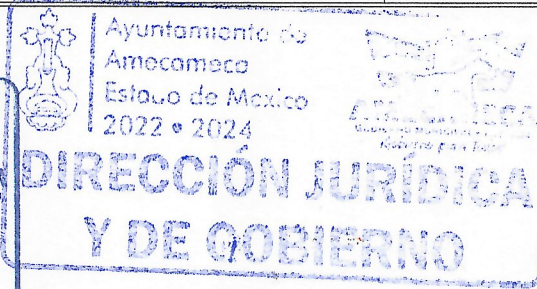 Ayuntamiento de
Amecameca
Estado de México
2022 • 2024
DIRECCIÓN JURÍDICA
Y DE GOBIERNO